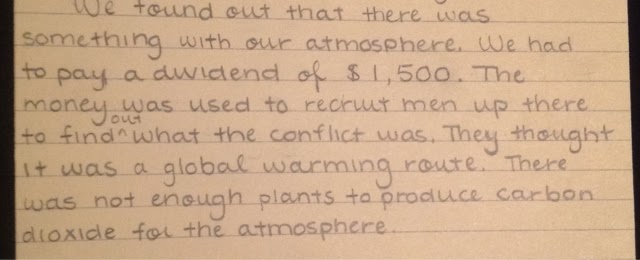 We found out that there was
something with our atmosphere. We had
to pay a dividend of $1,500. The
money was used to recruit men up there
to find ^out what the conflict was. They thought
it was a global warming route. There
was not enough plants to produce carbon
dioxide for the atmosphere.